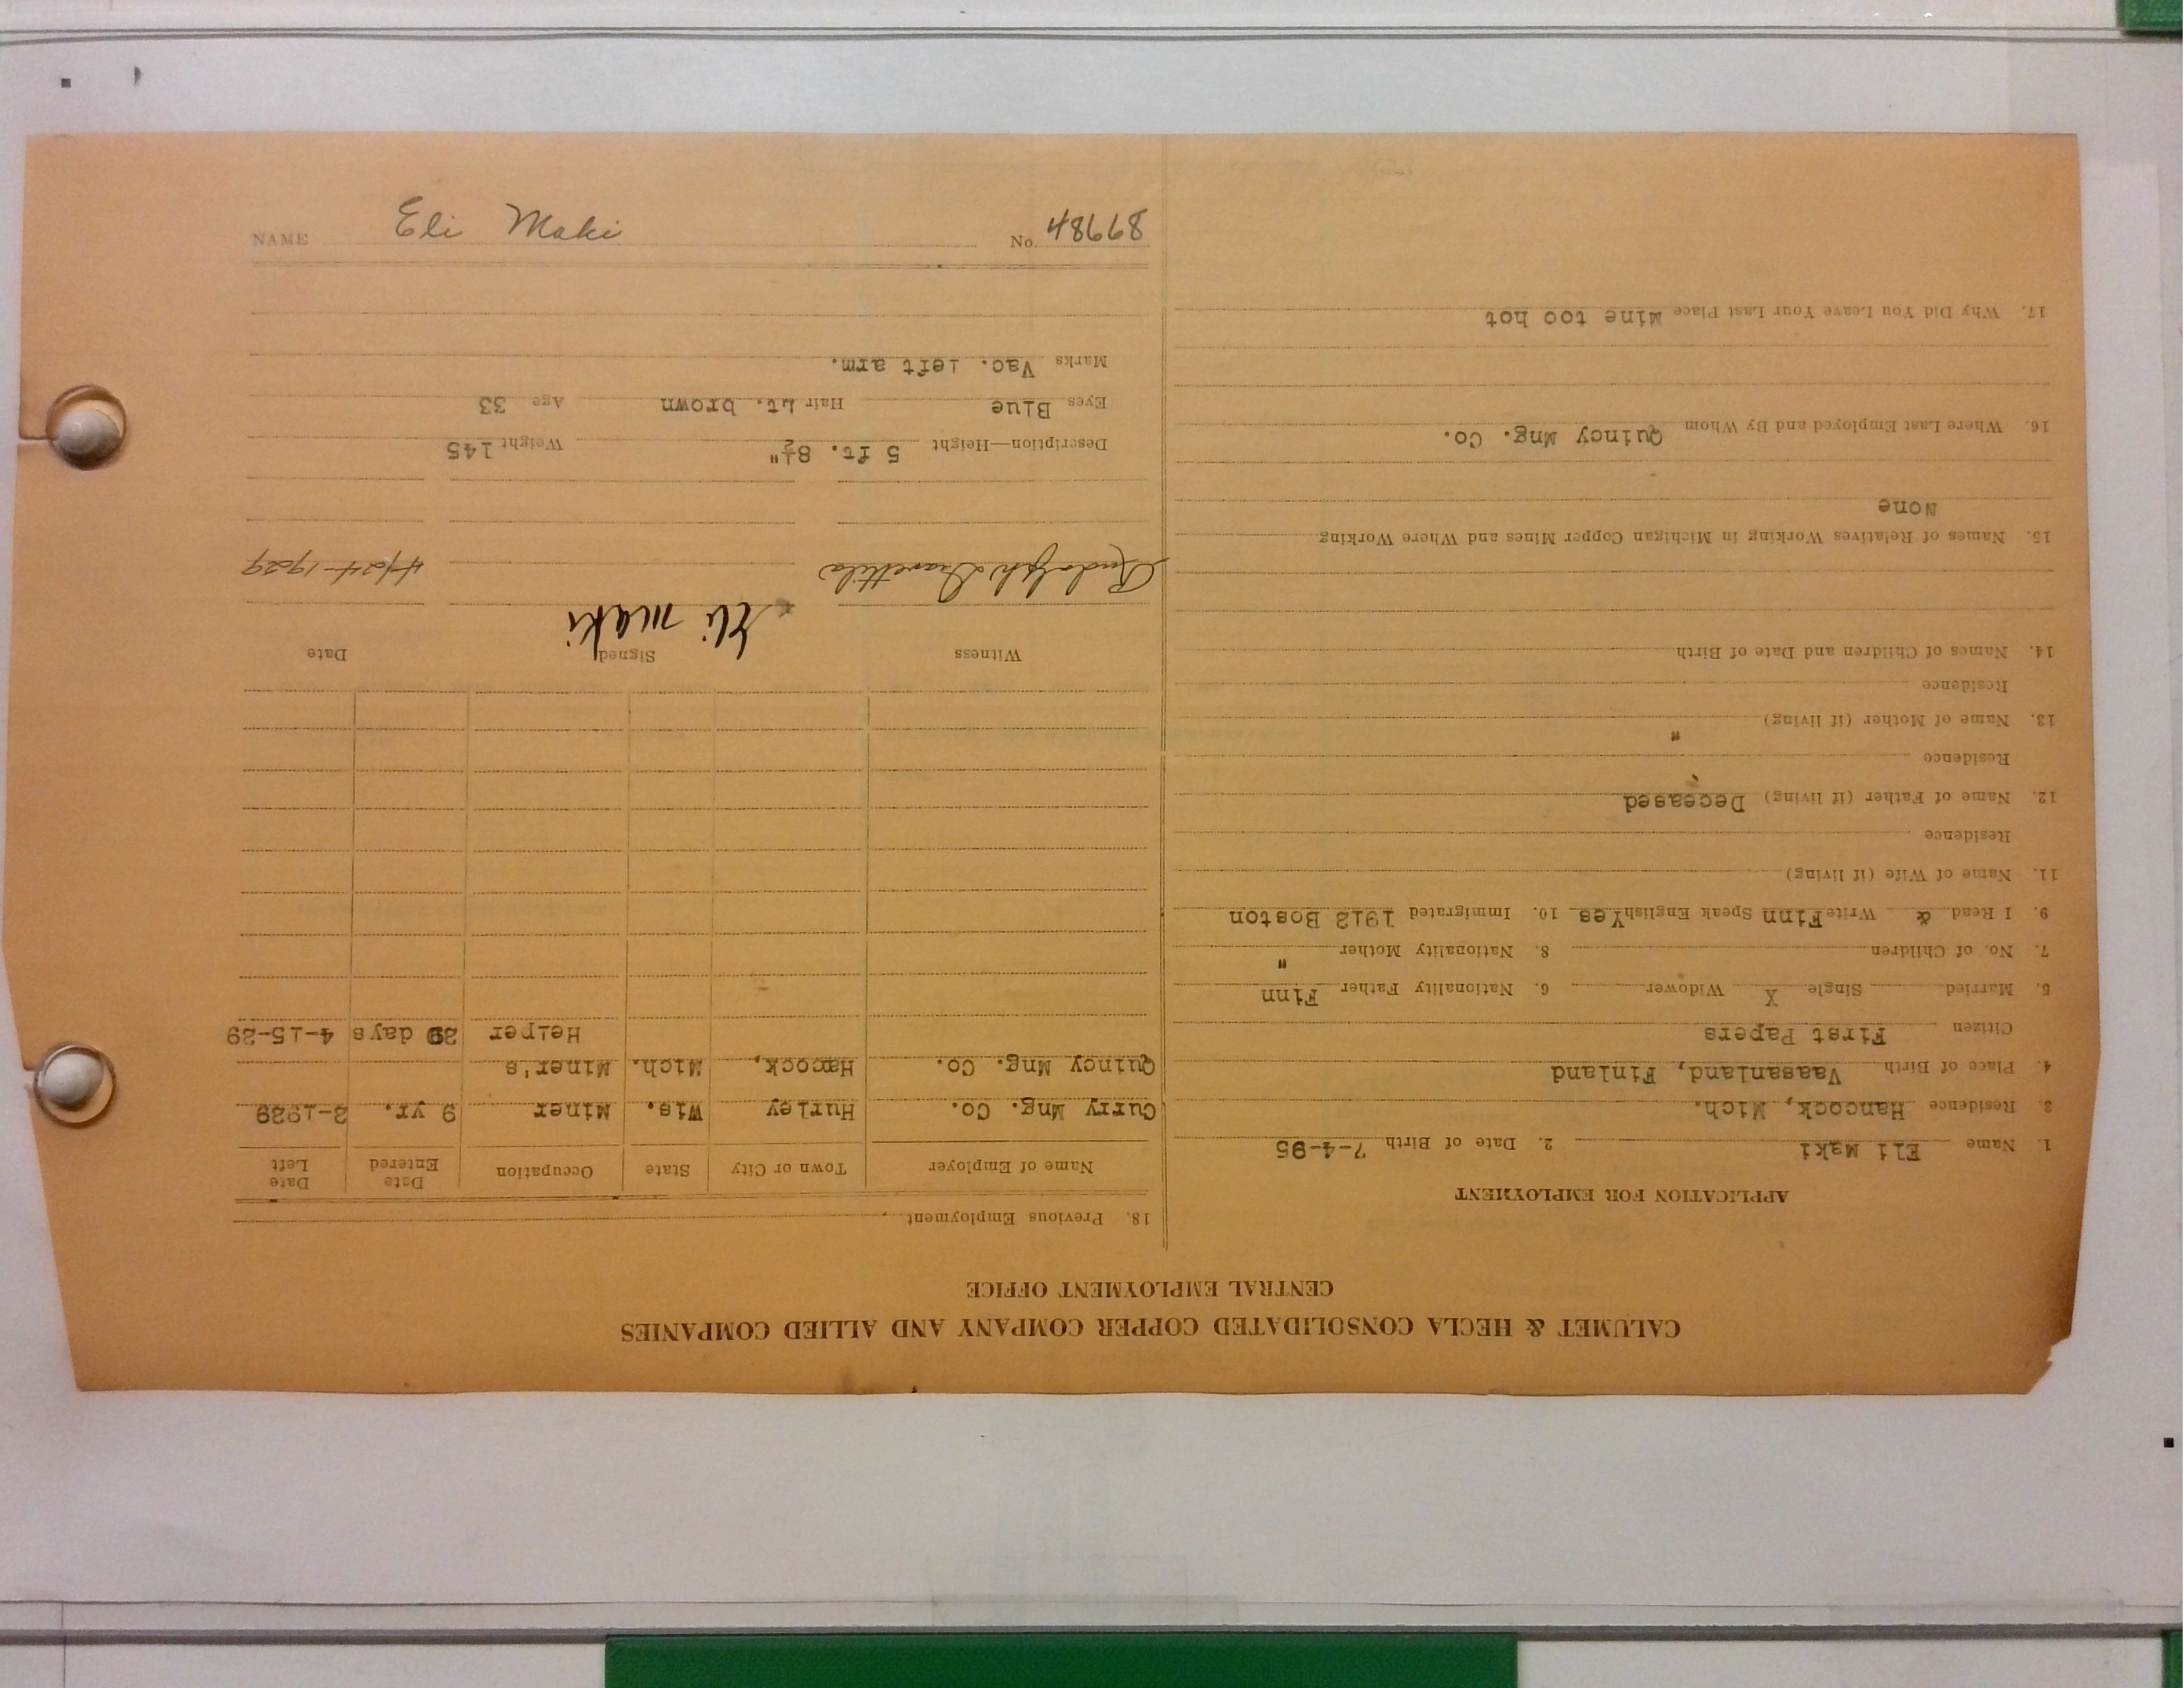 CALUMET & HECLA CONSOLIDATED COPPER COMPANY AND ALLIED COMPANIES
CENTRAL EMPLOYMENT OFFICE
APPLICATION FOR EMPLOYMENT
1. Name Eli Maki 2. Date of Birth 7-4-95
3. Residence Hancock, Mich.
4. Place of Birth Vaasanland, Finland
Citizen First Papers
5. Married Single X Widower 6. Nationality Father Finn
7. No. of Children 8. Nationality Mother "
9. I Read & Write Finn Speak English Yes 10. Immigrated Boston
11. Name of Wife (if living)
Residence
12. Name of Father (if living) Deceased
Residence
13. Name of Mother (if living) "
Residence
14. Names of Children and Date of Birth
15. Names of Relatives Working in Michigan Copper Mines and Where Working
None
16. Where Last Employed and By Whom Quincy Mng. Co.
17. Why Did You Leave Your Last Place Mine too hot
18. Previous Employment
Name of Employer Town or City State Occupation Date Entered Date Left
Curry Mng. Co. Hurley Wis. Miner 9 yr. 2-1929
Quincy Mng. Co. Hancock, Mich. Miner's
Helper days 4-15-29
Witness Signed Date
Rudolph Eli Maki 4/24-1929
Description—Height 5 ft. 8½" Weight 145
Eyes Blue Hair Lt. brown Age 33
Marks Vac. left arm.
NAME Eli Maki No. 48668